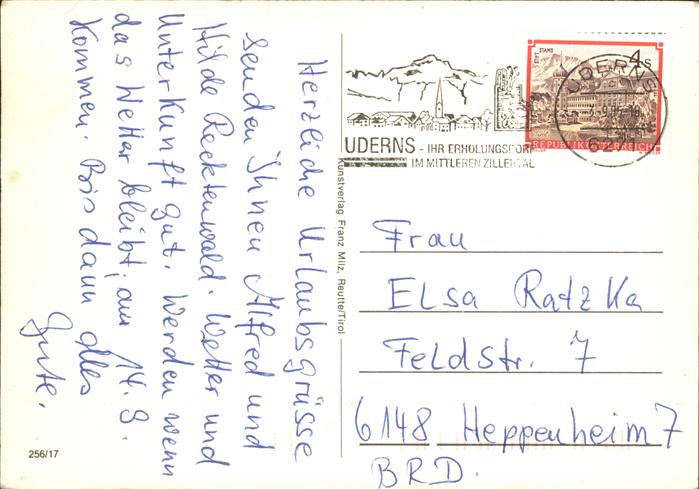 Herzliche Urlaubsgrüsse
senden Ihnen Alfred und
Hilde Recktenwald. Wetter und
Unterkunft gut. Werden wenn
das Wetter bleibt, am 14.9.
Kommen. Bis dann alles
Gute.
256/17
Kunstverlag Franz Milz, Reutte/Tirol
UDERNS - IHR ERHOLUNGSDORF
IM MITTLEREN ZILLERTAL
STIFT STAMS
4 S
REPUBLIK ÖSTERREICH
UDERNS
Frau
Elsa Ratzka
Feldstr. 7
6148 Heppenheim 7
BRD.